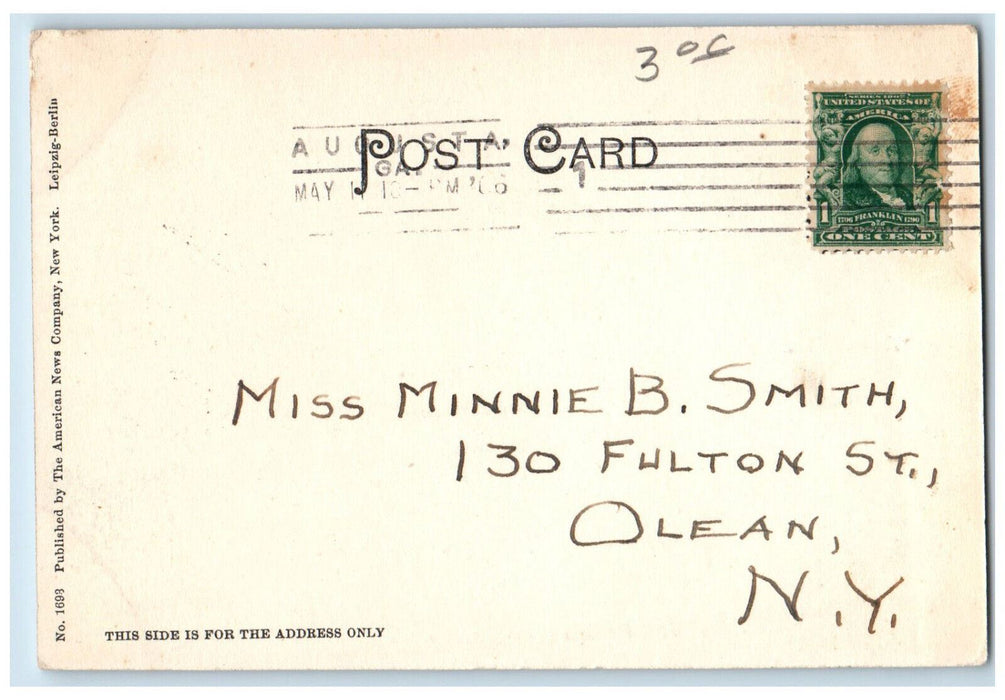 3 oc
POST CARD
AUGUSTA,
GA.
MAY 10-PM '06
1
SERIES 1902
UNITED STATES OF
AMERICA
1 1
1706 FRANKLIN 1790
POSTAGE
ONE CENT
MISS MINNIE B. SMITH,
130 FULTON ST.,
OLEAN,
N.Y.
THIS SIDE IS FOR THE ADDRESS ONLY
No. 1693 Published by The American News Company, New York. Leipzig-Berlin